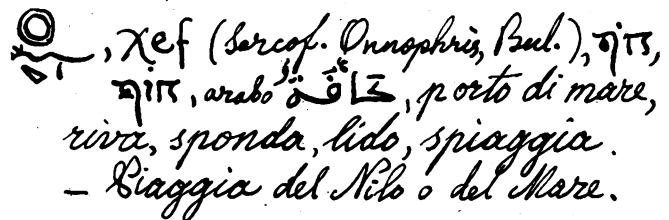 , χef (Sarcof. Onnophris, Bul.), חֹף,
חוֹף, arabo حَافَةٌ, porto di mare,
riva, sponda, lido, spiaggia.
– Piaggia del Nilo o del Mare.